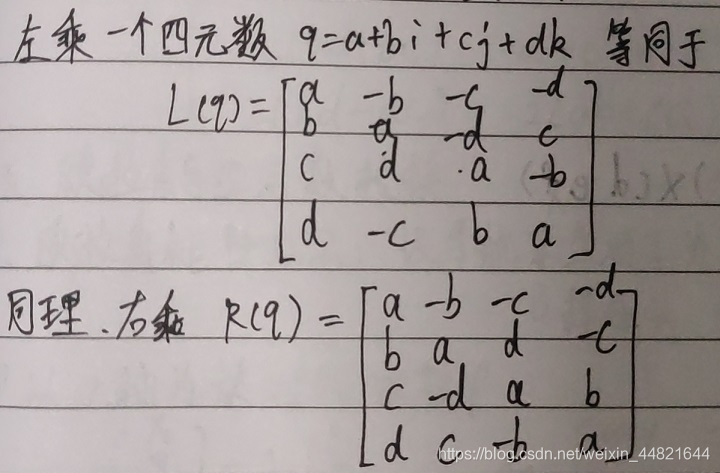 左乘一个四元数 q=a+bi+cj+dk 等同于
L(q)= [ a -b -c -d
b a -d c
c d a -b
d -c b a ]
同理、右乘 R(q) = [ a -b -c -d
b a d -c
c -d a b
d c -b a ]
https://blog.csdn.net/weixin_44821644